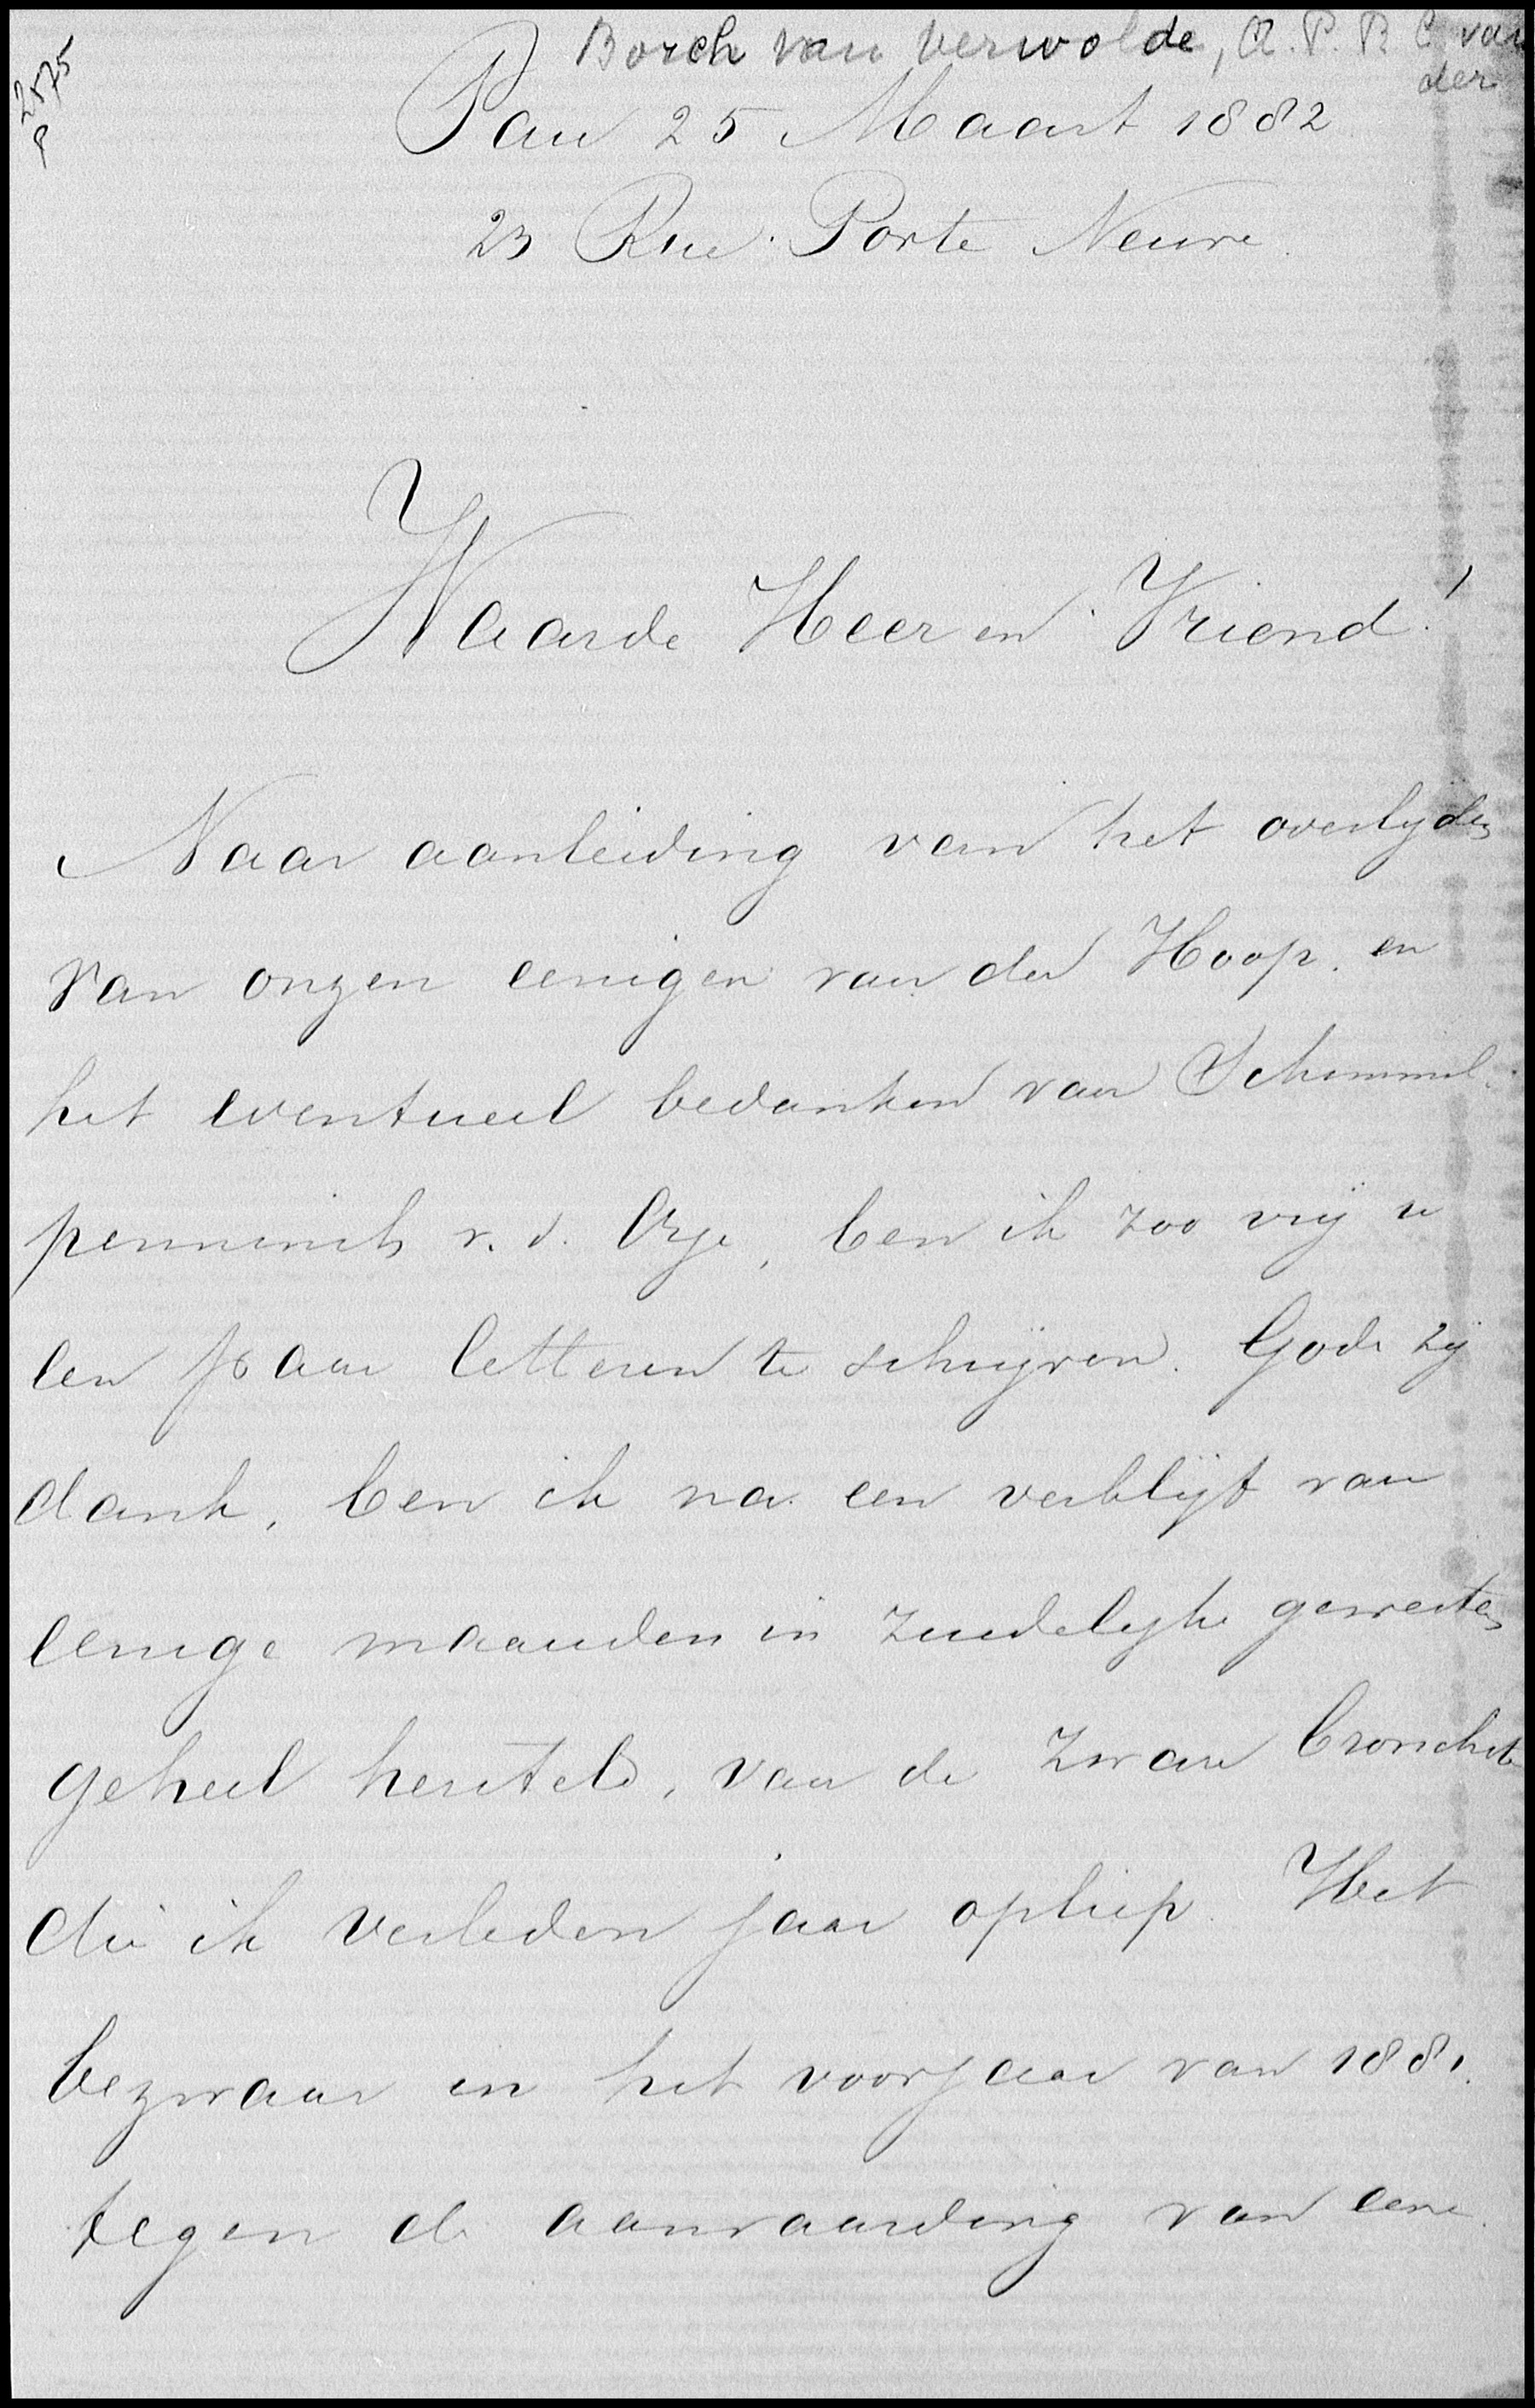 Borch van Verwolde, A. P. R. C. van
der
2575
Pau 25 Maart 1882
23 Rue Porte Neuve
Waarde Heer en Vriend!
Naar aanleiding van het overlyden
van onzen eenigen van der Hoop. en
het eventueel bedanken van Schimmel-
pennink v. d. Oye, ben ik zoo vrij u
een paar letteren te schrijven. Gode zij
dank, ben ik na een verblijf van
eenige maanden in zuidelyke gewesten
geheel hersteld, van de zware bronchite
die ik verleden jaar opliep. Het
bezwaar in het voorjaar van 1881.
tegen de aanvaarding van eene